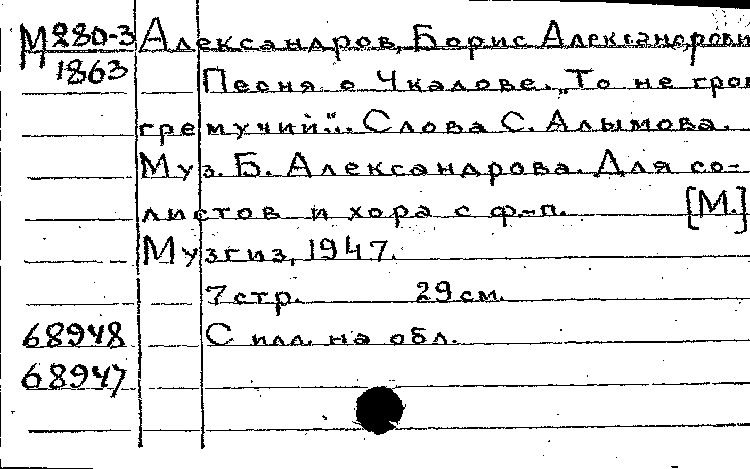 М280-3 Александров, Борис Александрови
1863 Песня о Чкалове. „То не гром
гремучий"... Слова С. Алымова.
Муз. Б. Александрова. Для со-
листов и хора с ф.-п. [М.]
Музгиз, 1947.
7 стр. 29 см.
68948 С илл. на обл.
68947